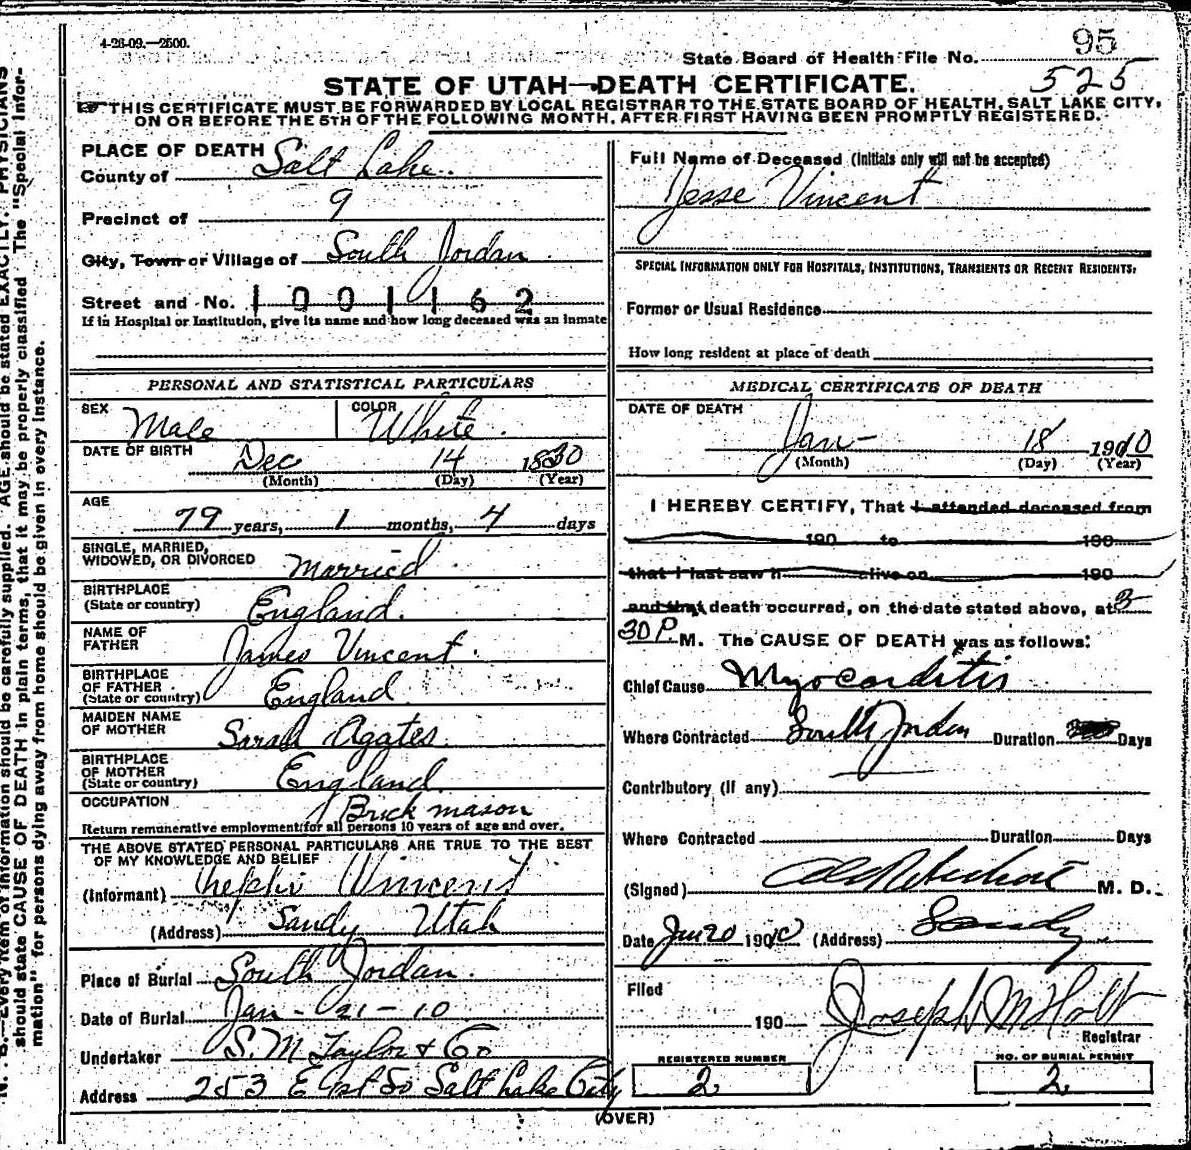 4-26-09.—2500.
95
State Board of Health File No.
525
STATE OF UTAH—DEATH CERTIFICATE.
THIS CERTIFICATE MUST BE FORWARDED BY LOCAL REGISTRAR TO THE STATE BOARD OF HEALTH, SALT LAKE CITY,
ON OR BEFORE THE 5TH OF THE FOLLOWING MONTH, AFTER FIRST HAVING BEEN PROMPTLY REGISTERED.
PLACE OF DEATH
County of Salt Lake.
Precinct of 9
City, Town or Village of South Jordan
Street and No. 1001162
If in Hospital or Institution, give its name and how long deceased was an inmate
PERSONAL AND STATISTICAL PARTICULARS
SEX Male
COLOR White.
DATE OF BIRTH Dec 14 1830
(Month) (Day) (Year)
AGE
79 years, 1 months, 4 days
SINGLE, MARRIED,
WIDOWED, OR DIVORCED Married
BIRTHPLACE
(State or country) England.
NAME OF
FATHER James Vincent.
BIRTHPLACE
OF FATHER
(State or country) England
MAIDEN NAME
OF MOTHER Sarah Agates.
BIRTHPLACE
OF MOTHER
(State or country) England.
OCCUPATION Brick mason
Return remunerative employment for all persons 10 years of age and over.
THE ABOVE STATED PERSONAL PARTICULARS ARE TRUE TO THE BEST
OF MY KNOWLEDGE AND BELIEF
(Informant) Nephi Vincent
(Address) Sandy Utah
Place of Burial South Jordan.
Date of Burial Jan - 21 - 10
Undertaker S. M. Taylor & Co
Address 253 E 1st So Salt Lake City
Full Name of Deceased (Initials only will not be accepted)
Jesse Vincent
SPECIAL INFORMATION ONLY FOR HOSPITALS, INSTITUTIONS, TRANSIENTS OR RECENT RESIDENTS:
Former or Usual Residence
How long resident at place of death
MEDICAL CERTIFICATE OF DEATH
DATE OF DEATH
Jan- 18 1910
(Month) (Day) (Year)
I HEREBY CERTIFY, That I attended deceased from
190 to 190
that I last saw h alive on 190
and that death occurred, on the date stated above, at 3
30 P. M. The CAUSE OF DEATH was as follows:
Chief Cause Myocarditis
Where Contracted South Jordan Duration Days
Contributory (If any)
Where Contracted Duration Days
(Signed) M. D.
Date Jan 20 1910 (Address) Sandy.
Filed
190 Joseph M Holt
Registrar
REGISTERED NUMBER
2
NO. OF BURIAL PERMIT
2
(OVER)
N. B.—Every item of information should be carefully supplied. AGE should be stated EXACTLY. PHYSICIANS
should state CAUSE OF DEATH in plain terms, that it may be properly classified. The "Special Infor-
mation" for persons dying away from home should be given in every instance.